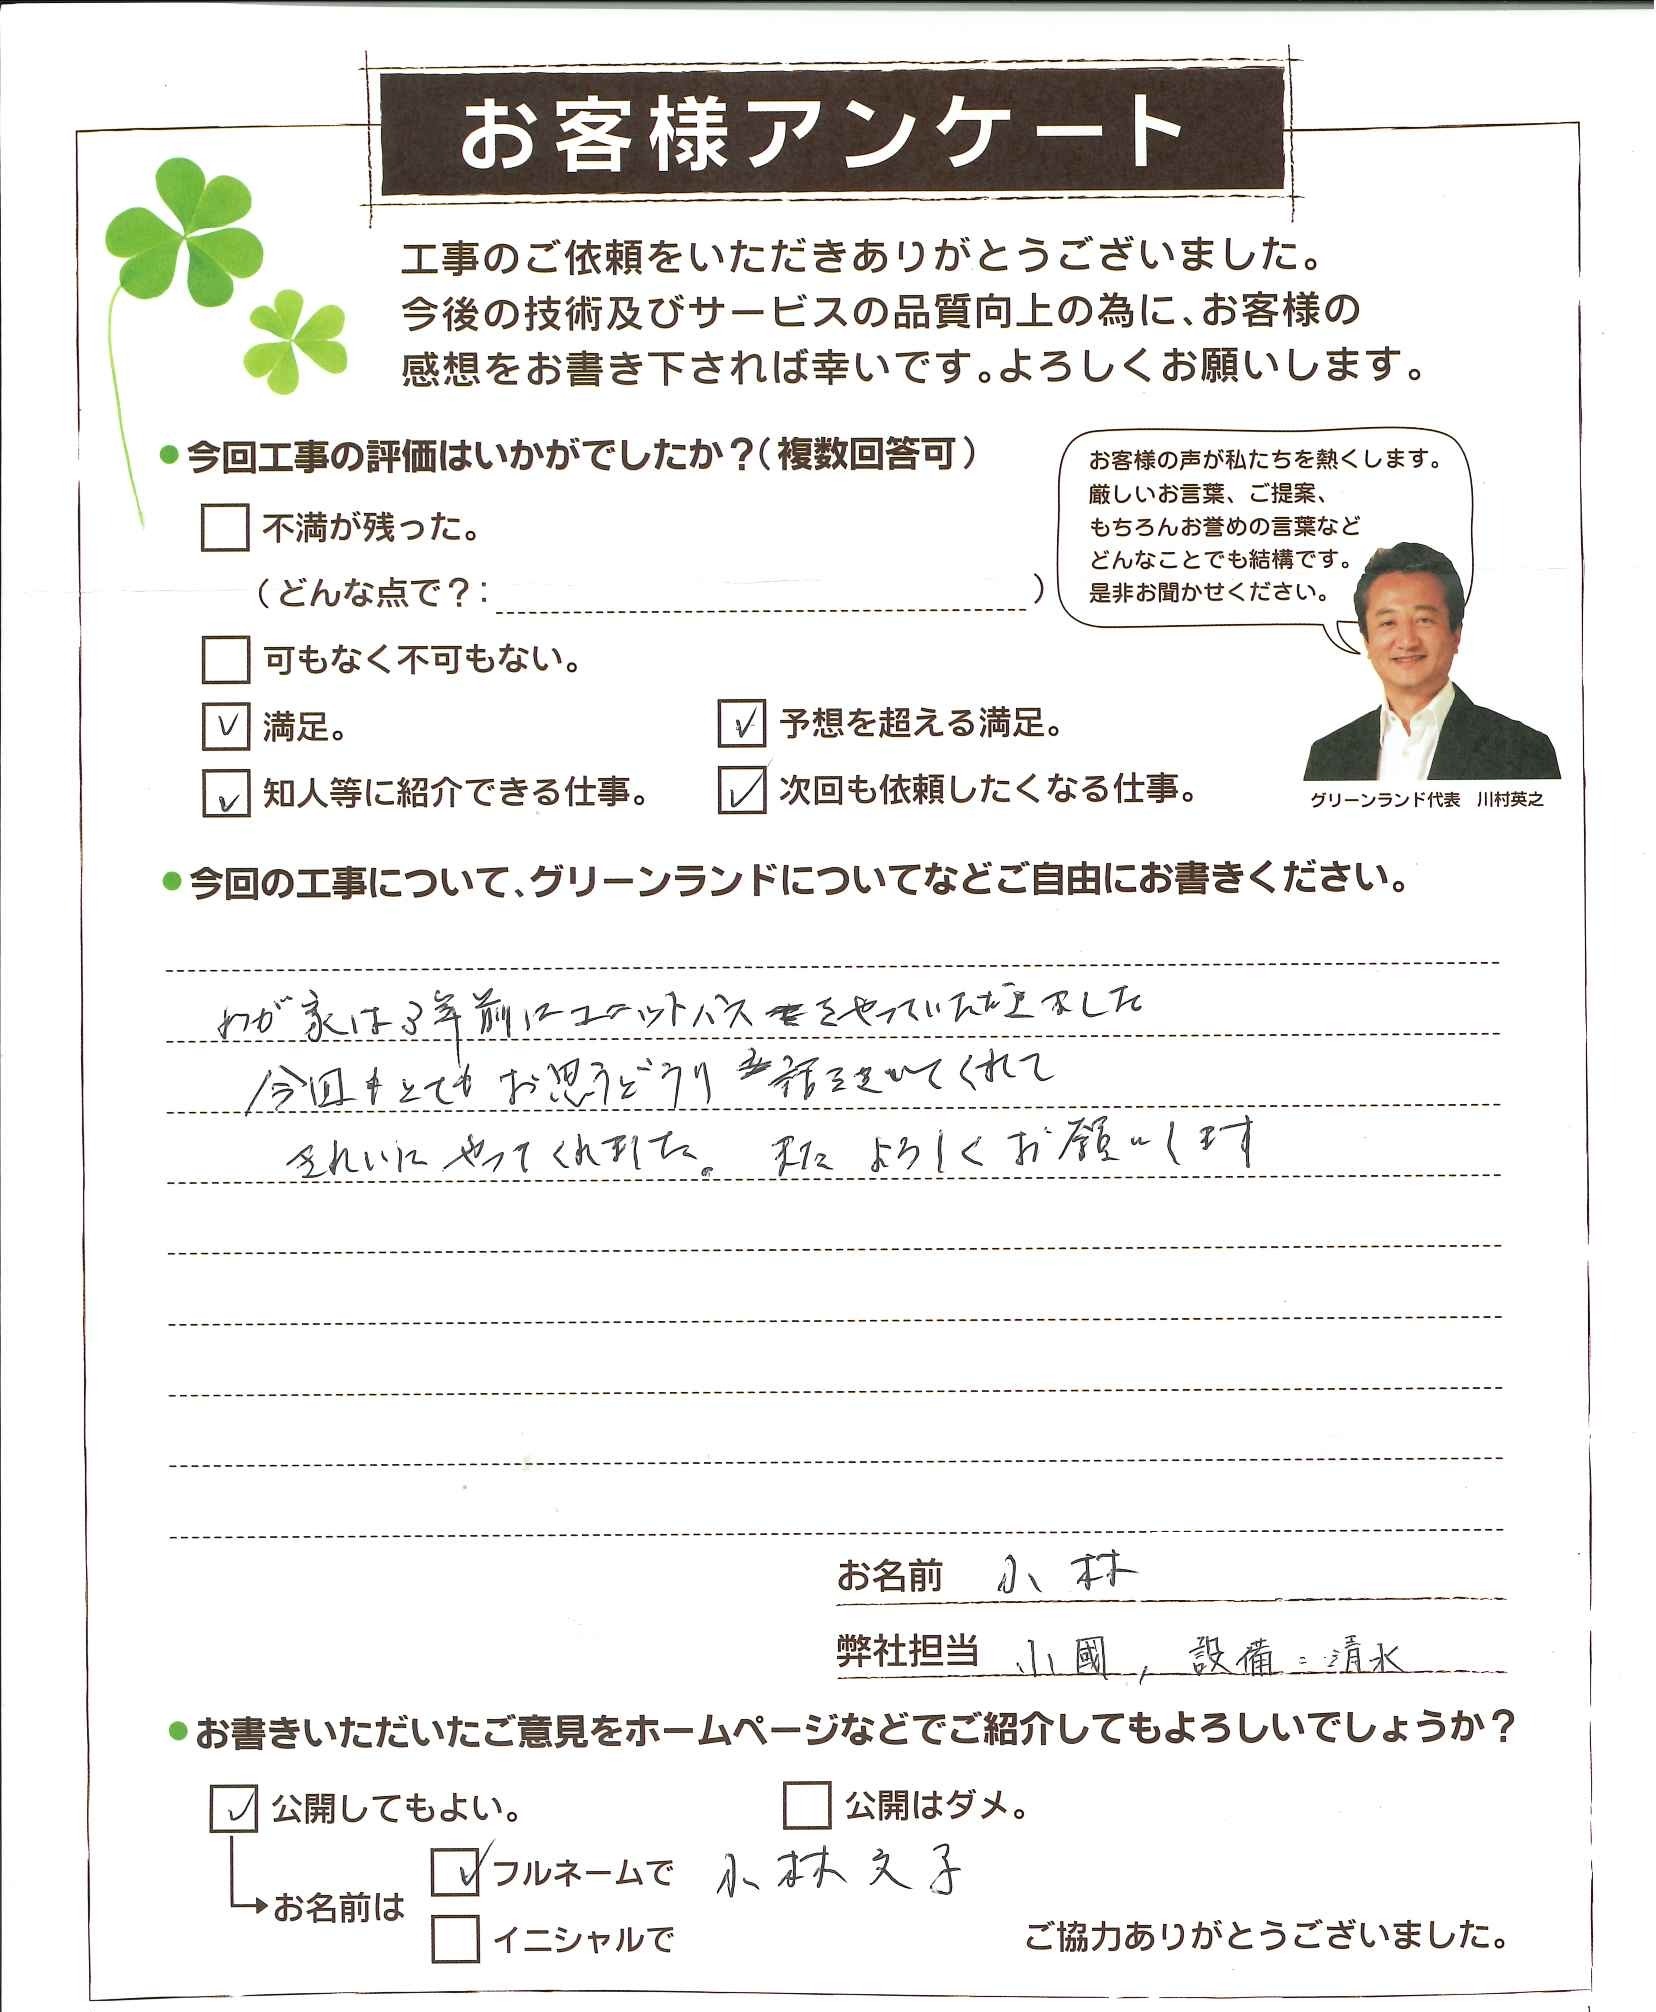 お客様アンケート
工事のご依頼をいただきありがとうございました。
今後の技術及びサービスの品質向上の為に、お客様の
感想をお書き下されば幸いです。よろしくお願いします。
●今回工事の評価はいかがでしたか？（複数回答可）
不満が残った。
（どんな点で？：）
可もなく不可もない。
満足。
予想を超える満足。
知人等に紹介できる仕事。
次回も依頼したくなる仕事。
お客様の声が私たちを熱くします。
厳しいお言葉、ご提案、
もちろんお誉めの言葉など
どんなことでも結構です。
是非お聞かせください。
グリーンランド代表 川村英之
●今回の工事について、グリーンランドについてなどご自由にお書きください。
わが家は3年前にユニットバスをやっていただきました
今回もとてもお思うどうり話をきいてくれて
きれいにやってくれました。またよろしくお願いします
お名前 小林
弊社担当 小國, 設備:清水
●お書きいただいたご意見をホームページなどでご紹介してもよろしいでしょうか？
公開してもよい。
公開はダメ。
お名前は
フルネームで 小林文子
イニシャルで
ご協力ありがとうございました。